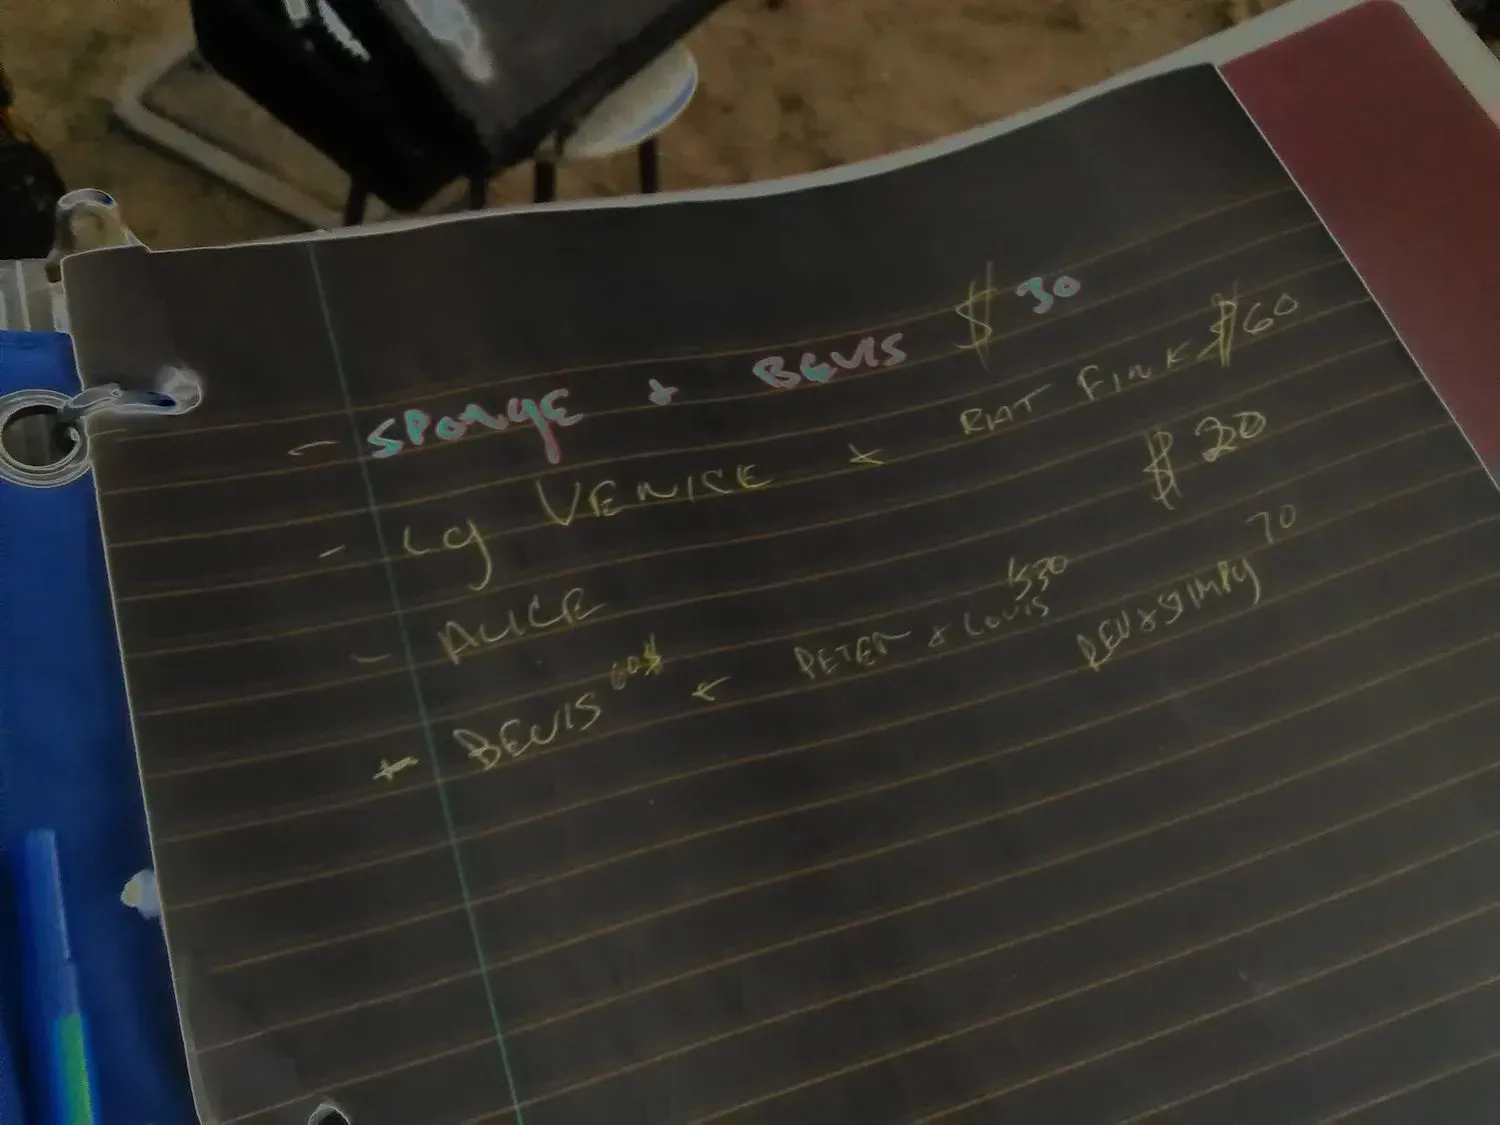 - SPONGE + BEVIS $ 30
- Lg VENICE + RAT FINK $60
- ALICE $ 20
+ BEVIS 60$ + PETER & LOUIS $30 REN & STIMPY 70